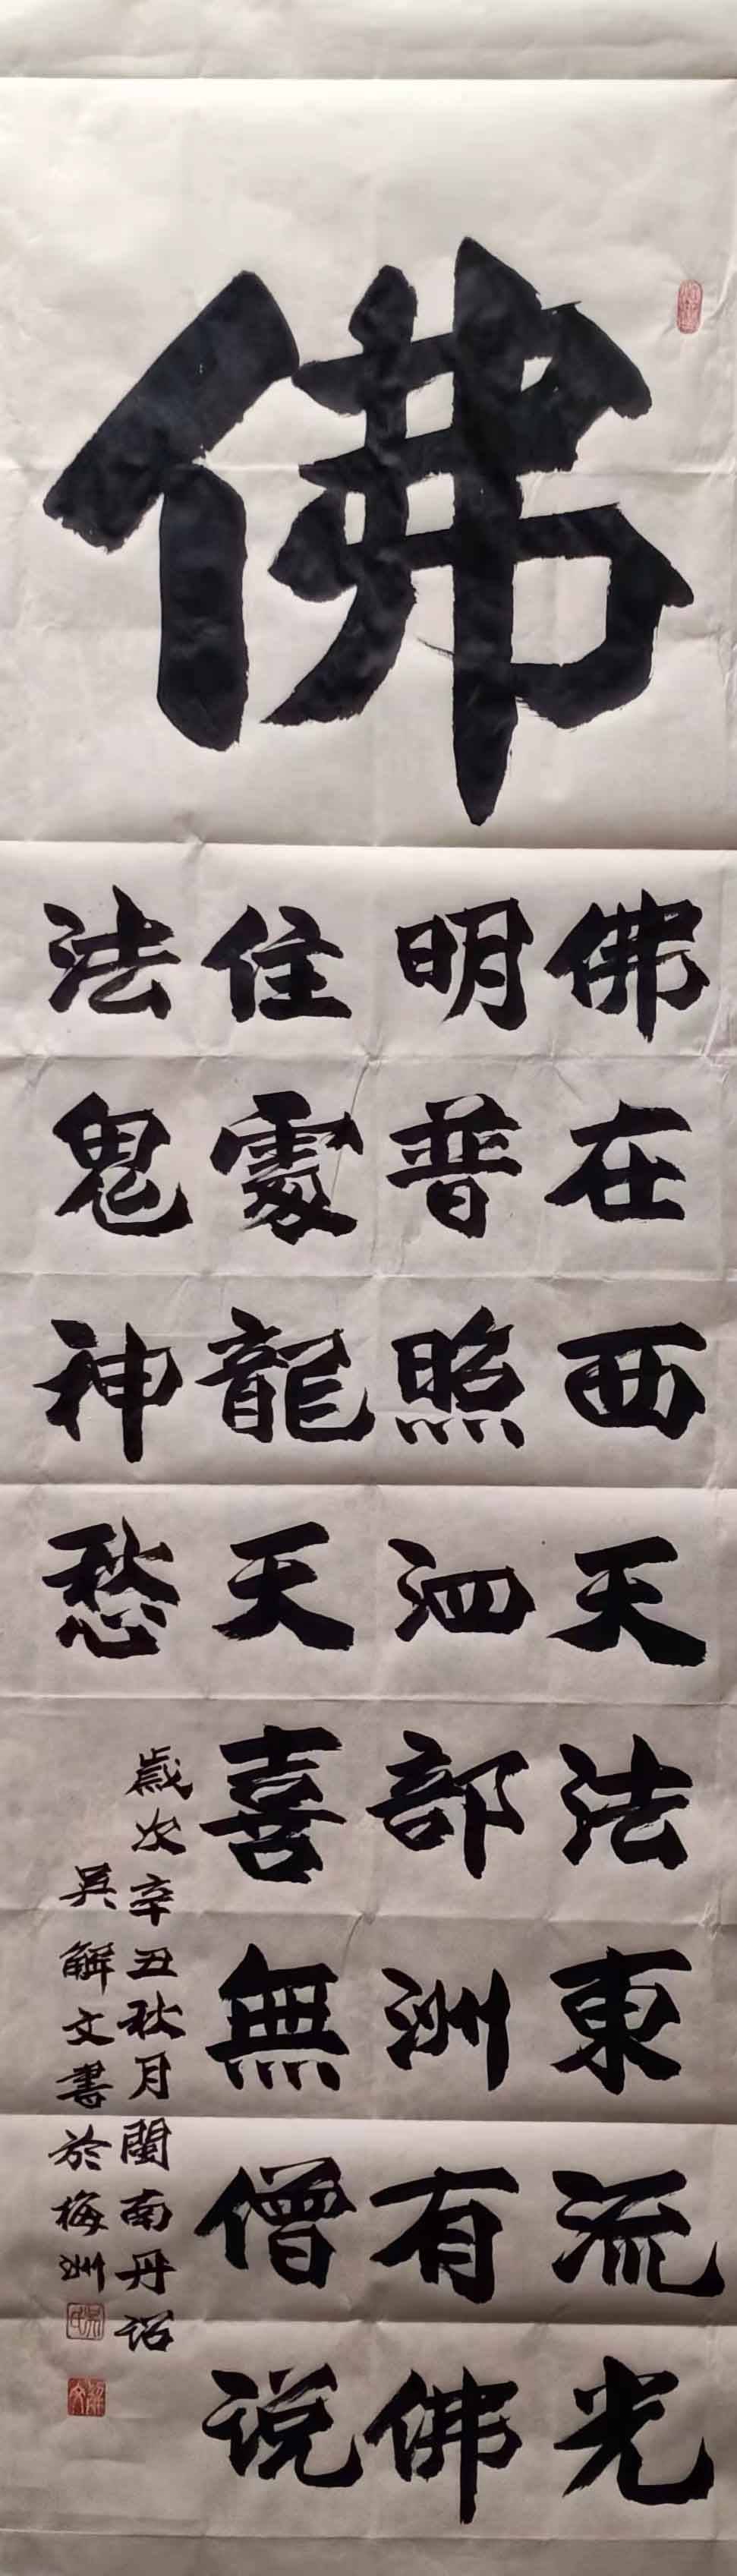 佛
佛在西天法東流光
明普照泗部洲有佛
住處龍天喜無僧说
法鬼神愁
歲次辛丑秋月閩南丹诏
吳解文書於梅洲
吳氏
解文